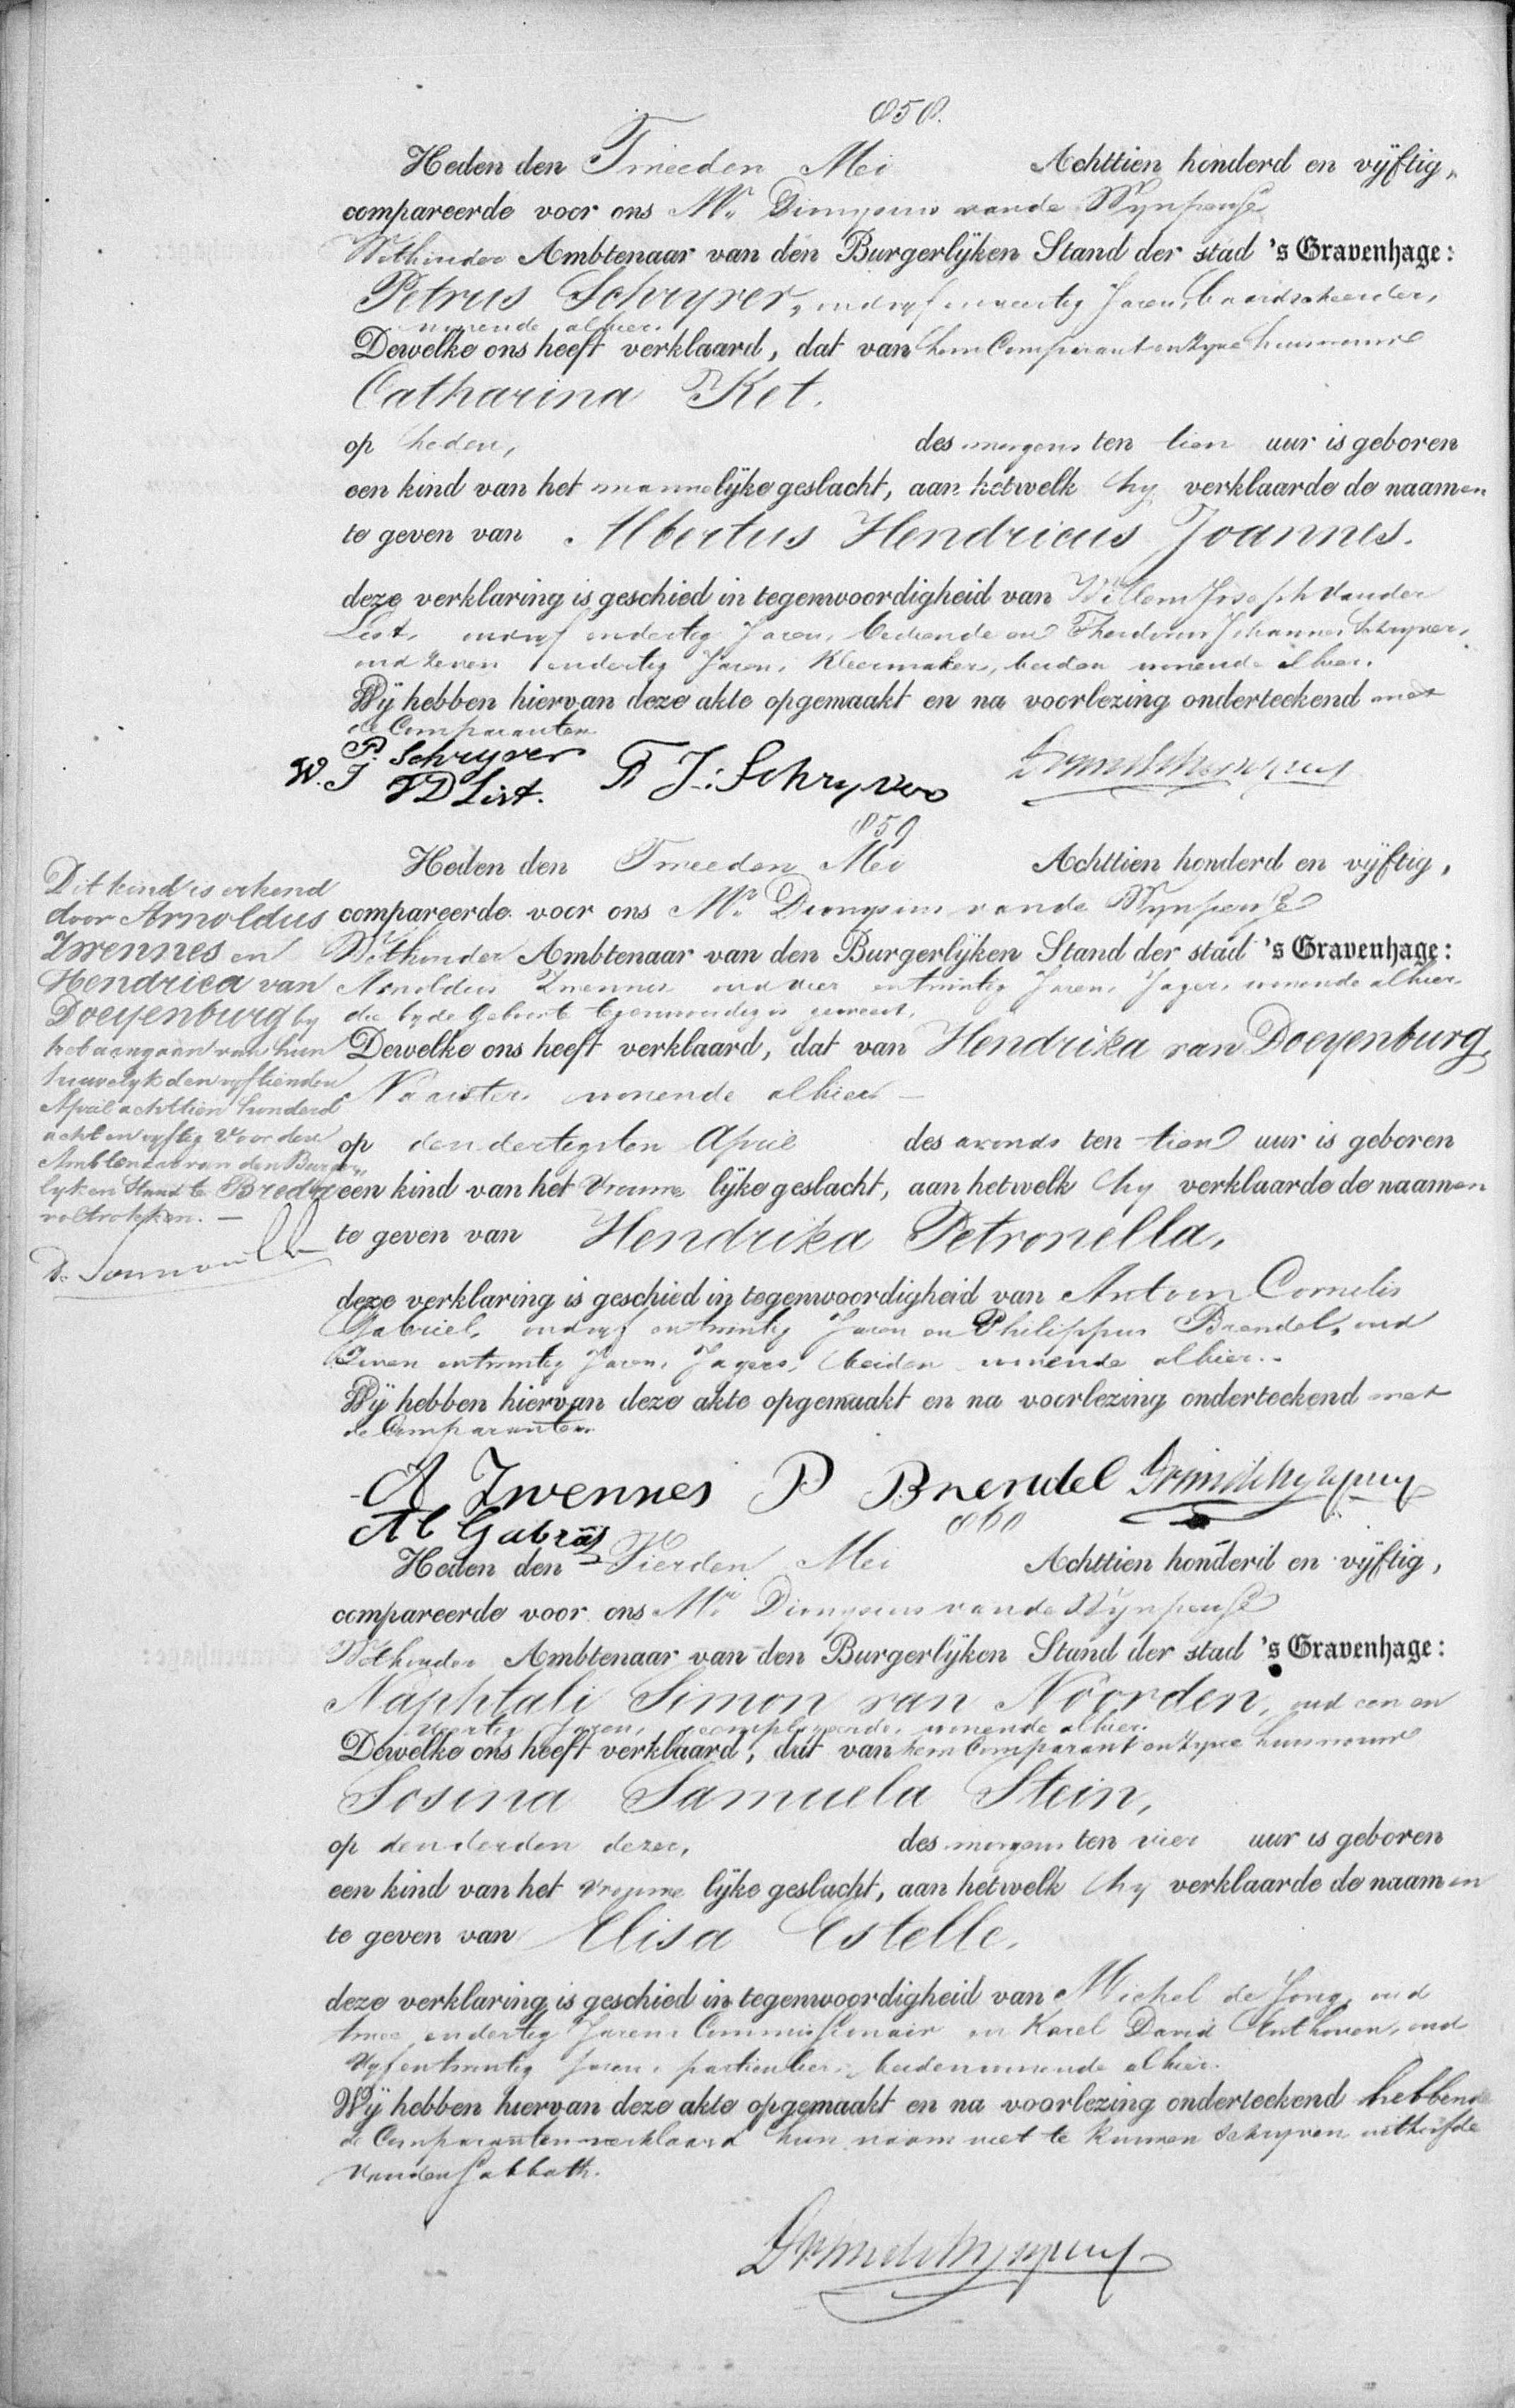 858.
Heden den Tweeden Mei Achttien honderd en vÿftig,
compareerde voor ons Mr. Dionysius van de Wynpersse
Wethouder Ambtenaar van den Burgerlÿken Stand der stad 's Gravenhage:
Petrus Schryver, oud vyf en veertig Jaren, baardscheerder,
wonende alhier.
Dewelke ons heeft verklaard, dat van hem Comparant en zyne huisvrouw
Catharina Ket.
op heden, des morgens ten tien uur is geboren
een kind van het mannelÿke geslacht, aan hetwelk hy verklaarde de naamen
te geven van Albertus Hendricus Joannes.
deze verklaring is geschied in tegenwoordigheid van Willem Joseph van der
List, oud vyf en dertig Jaren, bediende en Theodorus Johannes Schryver,
oud zeven en dertig Jaren, Kleermaker, beiden wonende alhier.
Wÿ hebben hiervan deze akte opgemaakt en na voorlezing onderteekend met
de Comparanten
P. Schryver
W. J VD List. T J: Schryver
859
Heden den Tweeden Mei Achttien honderd en vÿftig,
compareerde voor ons Mr. Dionysius van de Wynpersse
Wethouder Ambtenaar van den Burgerlÿken Stand der stad 's Gravenhage:
Arnoldus Zwennes oud vier en twintig Jaren, Jager, wonende alhier
die by de Geboorte tegenwoordig is geweest,
Dewelke ons heeft verklaard, dat van Hendrika van Doeyenburg,
Naaister, wonende alhier
op den dertigsten April des avonds ten tien uur is geboren
een kind van het Vrouwelÿke geslacht, aan hetwelk hy verklaarde de naamen
te geven van Hendrika Petronella,
deze verklaring is geschied in tegenwoordigheid van Antoon Cornelis
Gabriel, oud vyf en twintig Jaren en Philippus Brendel, oud
Zeven en twintig Jaren, Jagers, beiden wonende alhier.
Wÿ hebben hiervan deze akte opgemaakt en na voorlezing onderteekend met
de Comparanten
A Zwennes P Brendel
A C Gabriël
Dit kind is erkend
door Arnoldus
Zwennes en
Hendrica van
Doeyenburg by
het aangaan van hun
huwelyk den vyftienden
April achttien honderd
acht en vyftig voor den
Ambtenaar van den Burger,
lyken Stand te Breda
voltrokken.
860
Heden den Vierden Mei Achttien honderd en vÿftig,
compareerde voor ons Mr. Dionysius van de Wynpersse
Wethouder Ambtenaar van den Burgerlÿken Stand der stad 's Gravenhage:
Naphtali Simon van Noorden, oud een en
veertig Jaren, wonende alhier.
Dewelke ons heeft verklaard, dat van hem Comparant en zyne huisvrouw
Sosina Samuela Stein,
op den derden dezer, des morgens ten vier uur is geboren
een kind van het Vrouwelÿke geslacht, aan hetwelk hy verklaarde de naamen
te geven van Elisa Estelle.
deze verklaring is geschied in tegenwoordigheid van Michel de Jong, oud
twee en dertig Jaren Commissionair en Karel David Enthoven, oud
Vyf en twintig Jaren, particulier, beiden wonende alhier.
Wÿ hebben hiervan deze akte opgemaakt en na voorlezing onderteekend hebbende
de Comparanten verklaard hun naam niet te kunnen schryven uit hoofde
van den Sabbath.